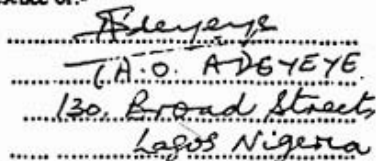 Adeyeye
T.A.O. ADEYEYE
130, Broad Street,
Lagos Nigeria